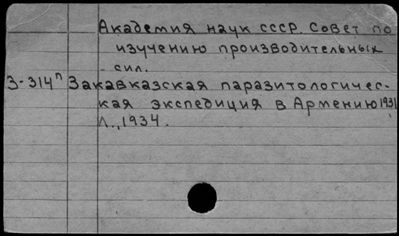 Академия наук СССР. Совет по
изучению производительных
сил.
З-314п Закавказская паразитологичес-
кая экспедиция в Армению 1931
Л., 1934.